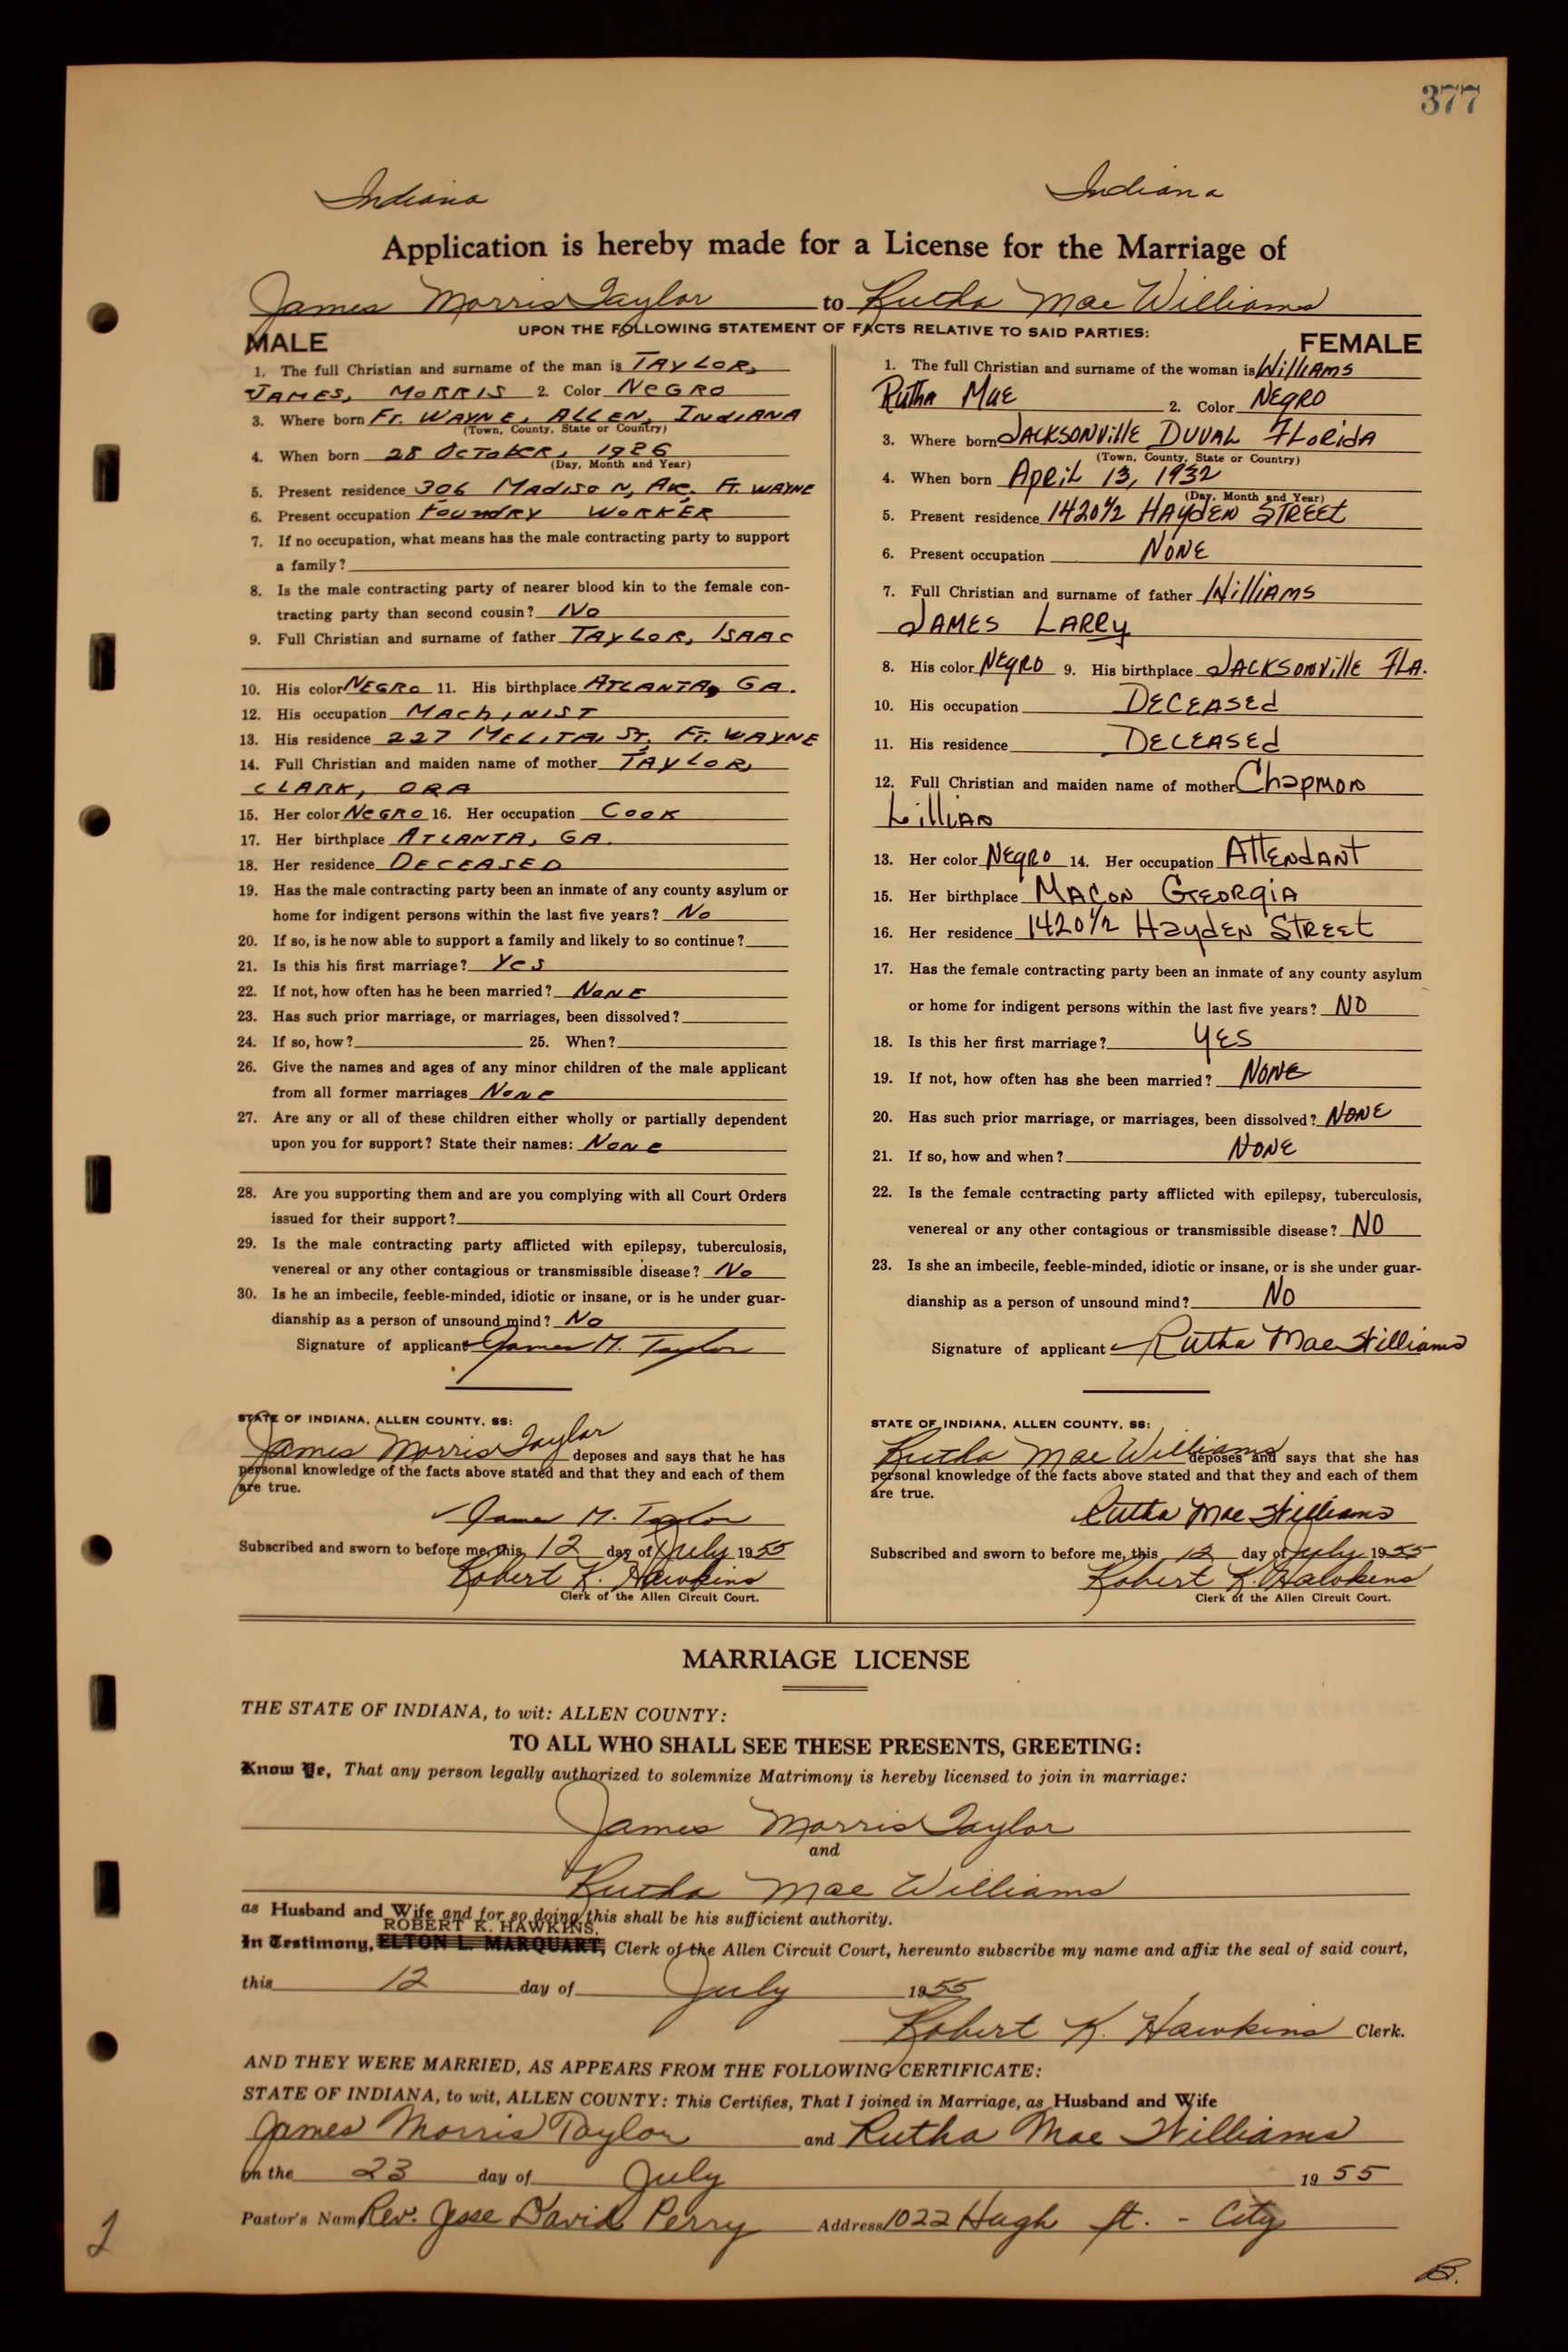 377
Indiana Indiana
Application is hereby made for a License for the Marriage of
James Morris Taylor to Rutha Mae Williams
UPON THE FOLLOWING STATEMENT OF FACTS RELATIVE TO SAID PARTIES:
MALE
1. The full Christian and surname of the man is TAYLOR,
JAMES, MORRIS 2. Color NEGRO
3. Where born FT. WAYNE, ALLEN, INDIANA
(Town, County, State or Country)
4. When born 28 OCTOBER, 1926
(Day, Month and Year)
5. Present residence 306 MADISON, AVE. FT. WAYNE
6. Present occupation FOUNDRY WORKER
7. If no occupation, what means has the male contracting party to support
a family?
8. Is the male contracting party of nearer blood kin to the female con-
tracting party than second cousin? No
9. Full Christian and surname of father TAYLOR, ISAAC
10. His color NEGRO 11. His birthplace ATLANTA, GA.
12. His occupation MACHINIST
13. His residence 227 MELITA, ST. FT. WAYNE
14. Full Christian and maiden name of mother TAYLOR,
CLARK, ORA
15. Her color NEGRO 16. Her occupation COOK
17. Her birthplace ATLANTA, GA.
18. Her residence DECEASED
19. Has the male contracting party been an inmate of any county asylum or
home for indigent persons within the last five years? No
20. If so, is he now able to support a family and likely to so continue?
21. Is this his first marriage? Yes
22. If not, how often has he been married? NONE
23. Has such prior marriage, or marriages, been dissolved?
24. If so, how? 25. When?
26. Give the names and ages of any minor children of the male applicant
from all former marriages None
27. Are any or all of these children either wholly or partially dependent
upon you for support? State their names: None
28. Are you supporting them and are you complying with all Court Orders
issued for their support?
29. Is the male contracting party afflicted with epilepsy, tuberculosis,
venereal or any other contagious or transmissible disease? No
30. Is he an imbecile, feeble-minded, idiotic or insane, or is he under guar-
dianship as a person of unsound mind? No
Signature of applicant James M. Taylor
STATE OF INDIANA, ALLEN COUNTY, SS:
James Morris Taylor deposes and says that he has
personal knowledge of the facts above stated and that they and each of them
are true.
James M. Taylor
Subscribed and sworn to before me, this 12 day of July 1955
Robert K. Hawkins
Clerk of the Allen Circuit Court.
FEMALE
1. The full Christian and surname of the woman is Williams
Rutha Mae 2. Color NEGRO
3. Where born JACKSONVILLE DUVAL FLORIDA
(Town, County, State or Country)
4. When born April 13, 1932
(Day, Month and Year)
5. Present residence 1420 1/2 HAYDEN STREET
6. Present occupation NONE
7. Full Christian and surname of father WilliAMS
JAMES LARRY
8. His color NEGRO 9. His birthplace JACKSONVILLE FLA.
10. His occupation DECEASED
11. His residence DECEASED
12. Full Christian and maiden name of mother Chapmon
Lillian
13. Her color NEGRO 14. Her occupation ATTENDANT
15. Her birthplace MACON GEORGIA
16. Her residence 1420 1/2 HAYDEN STREET
17. Has the female contracting party been an inmate of any county asylum
or home for indigent persons within the last five years? NO
18. Is this her first marriage? YES
19. If not, how often has she been married? NONE
20. Has such prior marriage, or marriages, been dissolved? NONE
21. If so, how and when? NONE
22. Is the female contracting party afflicted with epilepsy, tuberculosis,
venereal or any other contagious or transmissible disease? NO
23. Is she an imbecile, feeble-minded, idiotic or insane, or is she under guar-
dianship as a person of unsound mind? NO
Signature of applicant Rutha Mae Williams
STATE OF INDIANA, ALLEN COUNTY, SS:
Rutha Mae Williams deposes and says that she has
personal knowledge of the facts above stated and that they and each of them
are true.
Rutha Mae Williams
Subscribed and sworn to before me, this 12 day of July 1955
Robert K. Hawkins
Clerk of the Allen Circuit Court.
MARRIAGE LICENSE
THE STATE OF INDIANA, to wit: ALLEN COUNTY:
TO ALL WHO SHALL SEE THESE PRESENTS, GREETING:
Know Ye, That any person legally authorized to solemnize Matrimony is hereby licensed to join in marriage:
James Morris Taylor
and
Rutha Mae Williams
as Husband and Wife and for so doing this shall be his sufficient authority.
ROBERT K. HAWKINS,
In Testimony, ELTON L. MARQUART, Clerk of the Allen Circuit Court, hereunto subscribe my name and affix the seal of said court,
this 12 day of July 1955
Robert K. Hawkins Clerk.
AND THEY WERE MARRIED, AS APPEARS FROM THE FOLLOWING CERTIFICATE:
STATE OF INDIANA, to wit, ALLEN COUNTY: This Certifies, That I joined in Marriage, as Husband and Wife
James Morris Taylor and Rutha Mae Williams
on the 23 day of July 1955
Pastor's Name Rev. Jesse David Perry Address 1022 Hugh St. - City
B.